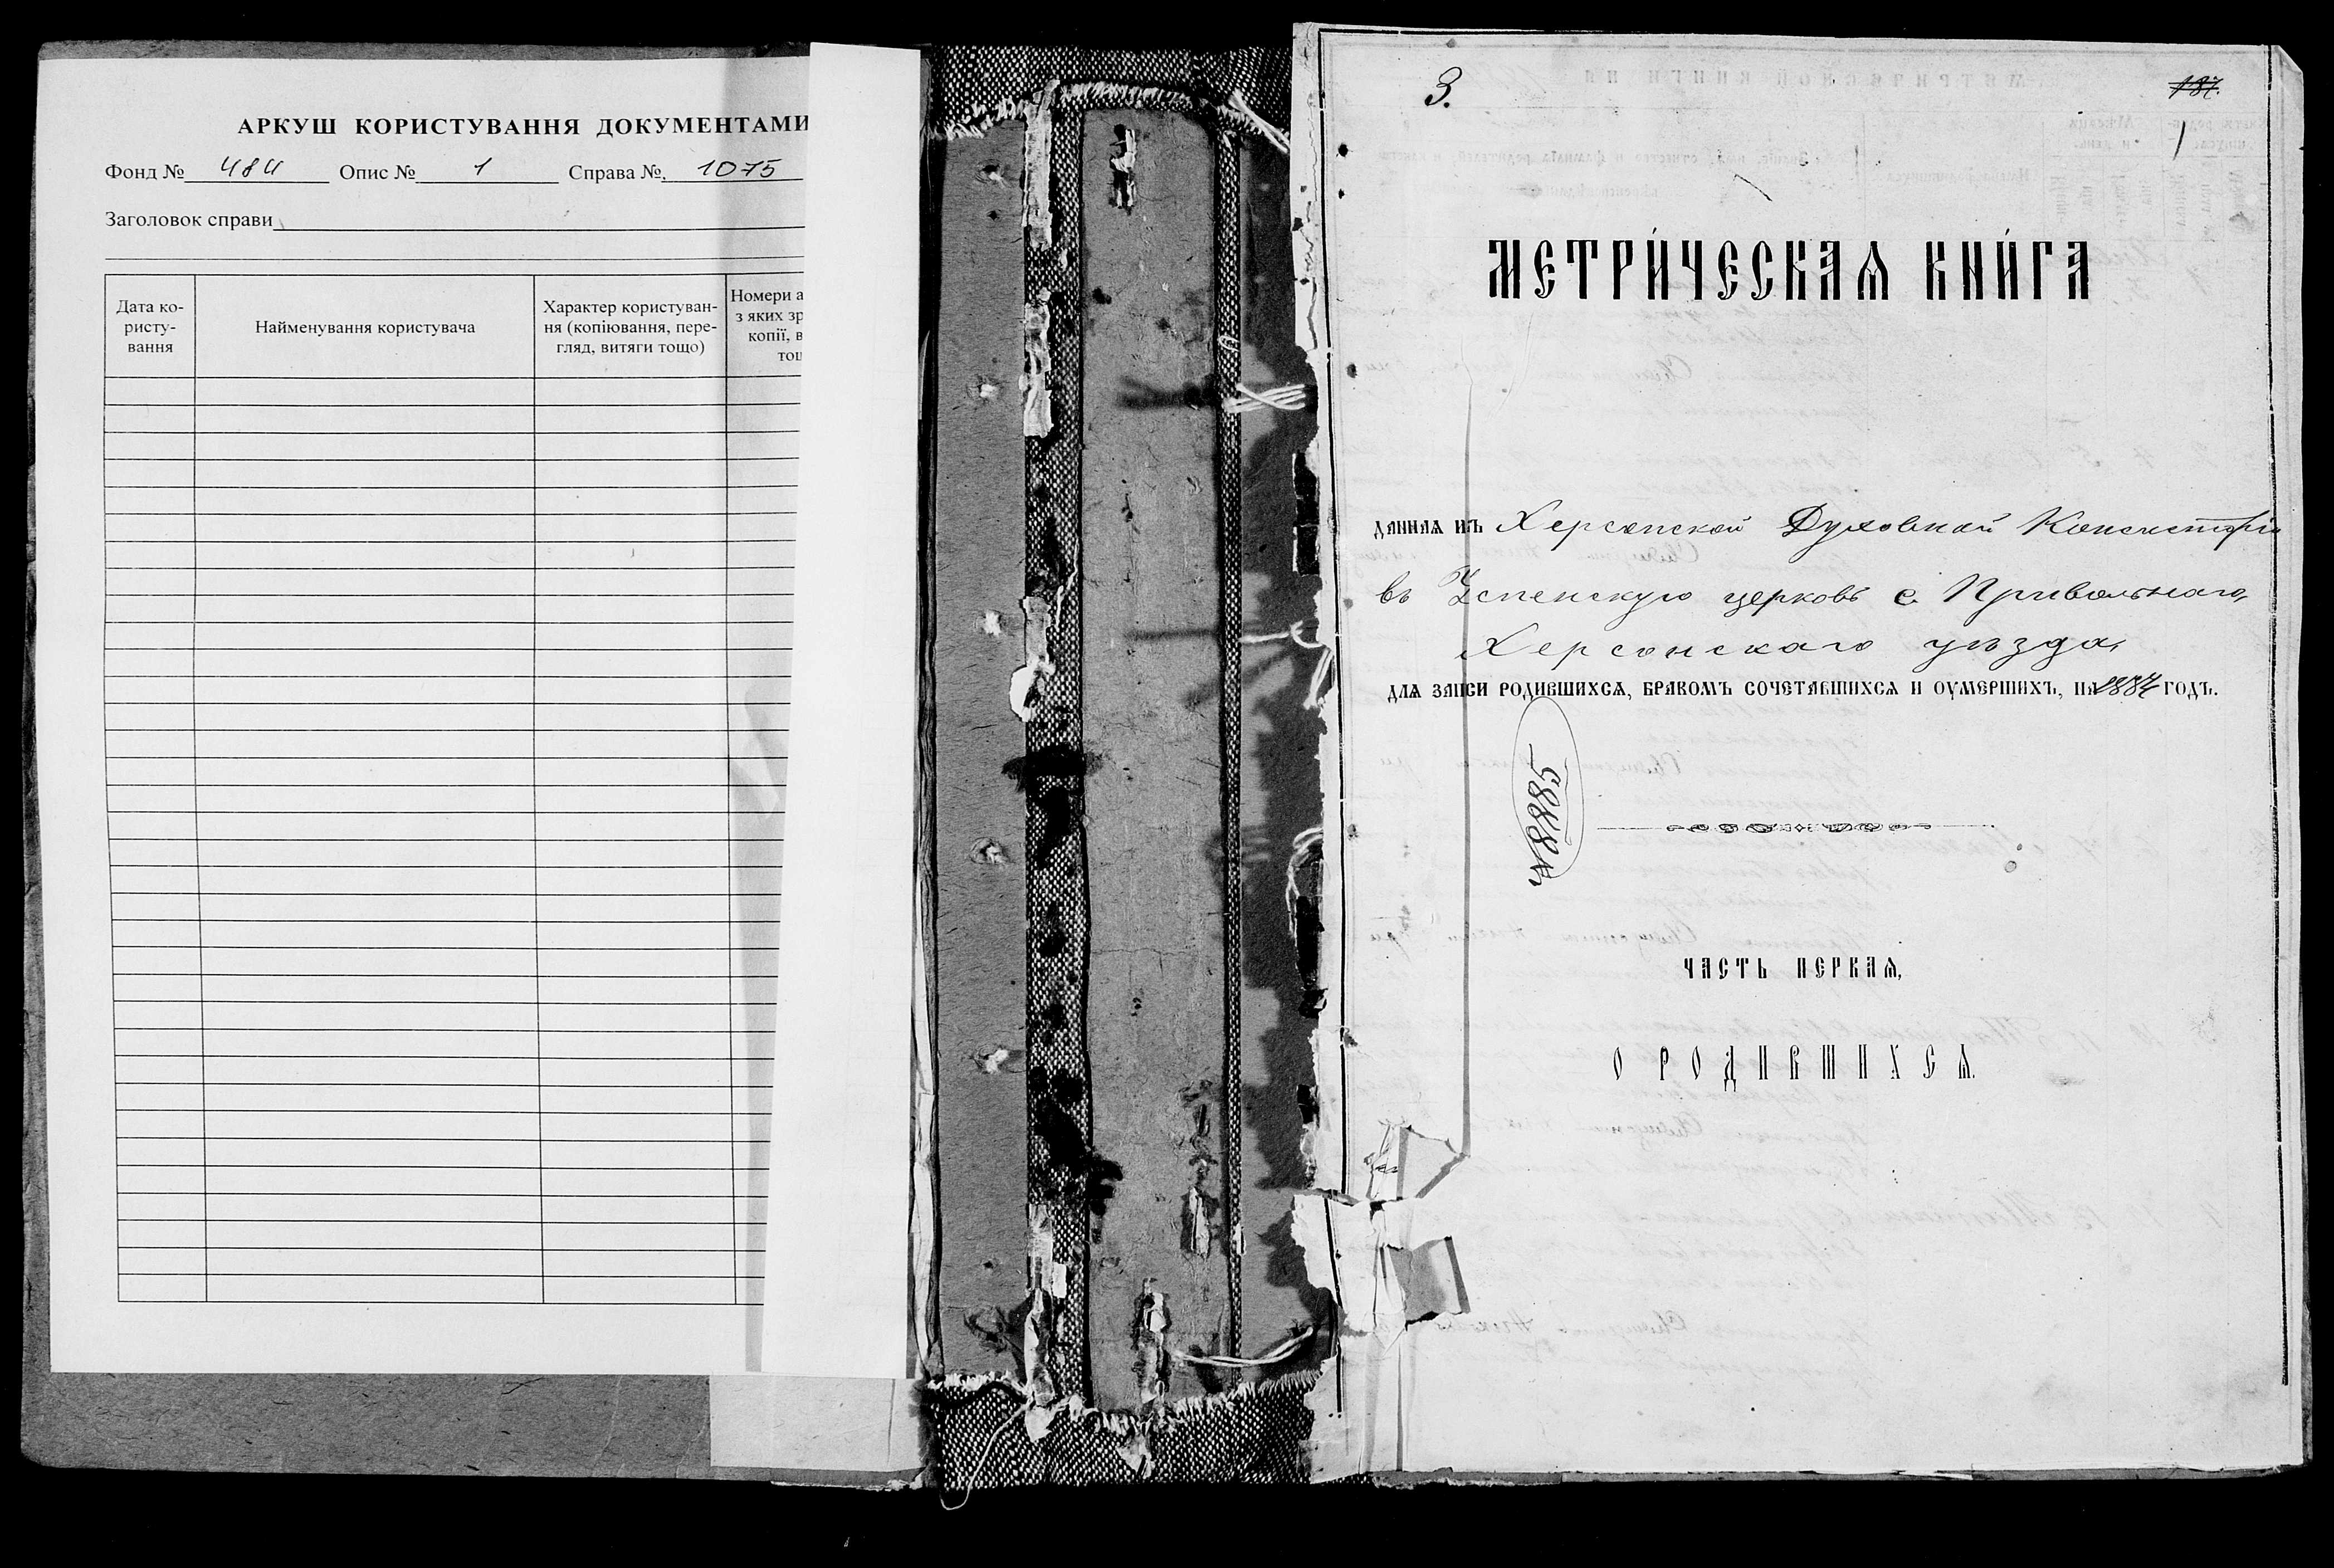 АРКУШ КОРИСТУВАННЯ ДОКУМЕНТАМИ
Фонд № 484 Опис № 1 Справа №. 1075
Заголовок справи
Дата ко-
ристу-
вання
Найменування користувача
Характер користуван-
ня (копіювання, пере-
гляд, витяги тощо)
Номери а
з яких зр
копії, в
тощ
3.
187.
1
МЕТРИ́ЧЕСКАѦ КНИ́ГА
даннаѧ изъ Херсонской Духовной Консисторіи
въ Успенскую церковь с. Привольнаго,
Херсонскаго уѣзда,
длѧ записи родившихсѧ, бракомъ сочетавшихсѧ и оумершихъ, на годъ.
ЧАСТЬ ПЕРВАѦ,
О РОДИВШИХСѦ.